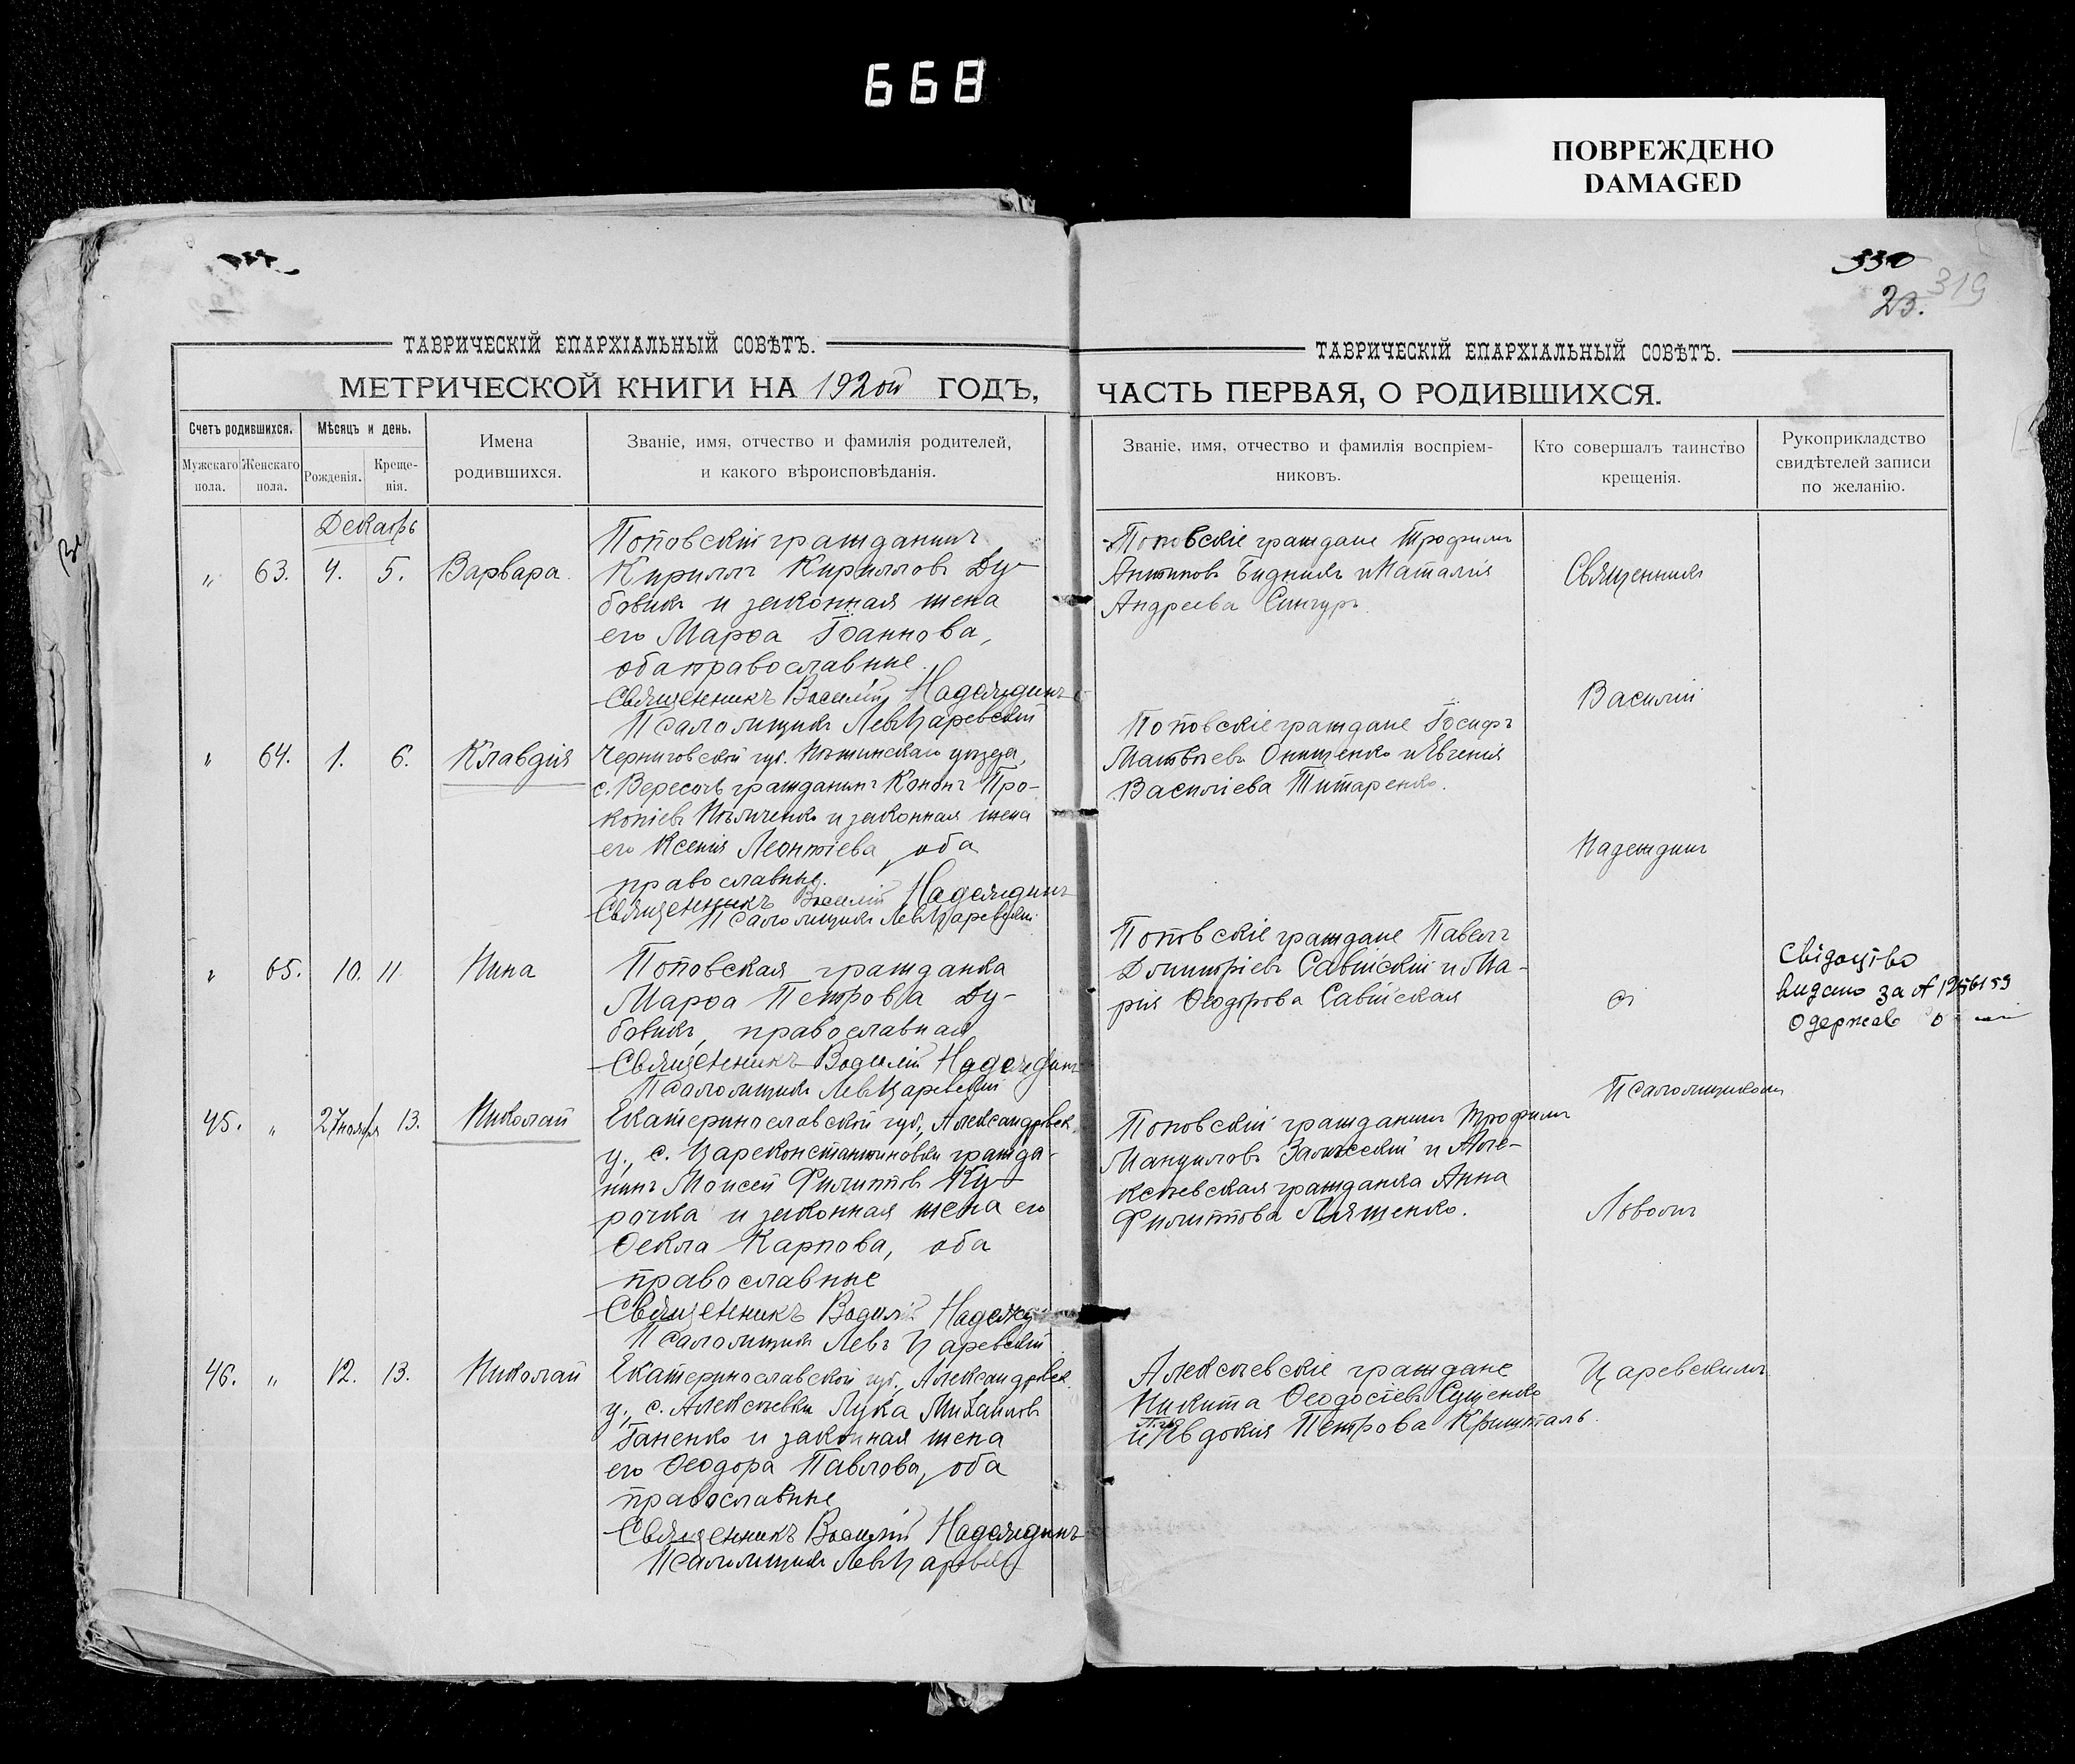 668
ПОВРЕЖДЕНО
DAMAGED
330
319
23.
ТАВРИЧЕСКІЙ ЕПАРХІАЛЬНЫЙ СОВѢТЪ.
МЕТРИЧЕСКОЙ КНИГИ НА 1920й ГОДЪ,
Счетъ родившихся.
Мужскаго пола.
Женскаго пола.
Мѣсяцъ и день.
Рожденія.
Креще-
нія.
Имена
родившихся.
Званіе, имя, отчество и фамилія родителей,
и какого вѣроисповѣданія.
Декабрь
„ 63. 4. 5. Варвара.
Поповскій гражданинъ
Кириллъ Кирилловъ Ду-
бовикъ и законная жена
его Марѳа Іоаннова,
оба православные.
Священникъ Василій Надеждинъ
Псаломщикъ Левъ Царевскій
„ 64. 1. 6. Клавдія
Черниговской губ. Нѣжинскаго уѣзда,
с. Вересочь гражданинъ Кононъ Про-
копіевъ Ильченко и законная жена
его Ксенія Леонтіева, оба
православные.
Священникъ Василій Надеждинъ
Псаломщикъ Левъ Царевскій
„ 65. 10. 11. Нина
Поповская гражданка
Марѳа Петрова Ду-
бовикъ, православная
Священникъ Василій Надеждинъ
Псаломщикъ Левъ Царевскій
45. „ 27 ноября 13. Николай
Екатеринославской губ., Александровск.
у., с. Цареконстантиновки гражда-
нинъ Моисей Филипповъ Ку-
рочка и законная жена его
Ѳекла Карпова, оба
православные
Священникъ Василій Надежд
Псаломщикъ Левъ Царевскій
46. „ 12. 13. Николай
Екатеринославской губ., Александровск.
у., с. Алексѣевки Лука Михаиловъ
Ганенко и законная жена
его Ѳеодора Павлова, оба
православные
Священникъ Василій Надеждинъ
Псаломщикъ Левъ Царевскій
ТАВРИЧЕСКІЙ ЕПАРХІАЛЬНЫЙ СОВѢТЪ.
ЧАСТЬ ПЕРВАЯ, О РОДИВШИХСЯ.
Званіе, имя, отчество и фамилія воспріем-
никовъ.
Кто совершалъ таинство
крещенія.
Рукоприкладство
свидѣтелей записи
по желанію.
Поповскіе граждане Трофимъ
Антиповъ Бидникъ и Наталія
Андреева Сингуръ.
Священникъ
Василій
Поповскіе граждане Іосифъ
Матвѣевъ Онищенко и Евгенія
Василіева Титаренко.
Надеждинъ
Поповскіе граждане Павелъ
Димитріевъ Савійскій и Ма-
рія Ѳеодорова Савійская
съ
Свідоцтво
видано за А 1256159
одержав
Псаломщикомъ
Поповскій гражданинъ Трофимъ
Мануиловъ Залѣсскій и Але-
ксѣевская гражданка Анна
Филиппова Ляшенко.
Львомъ
Алексѣевскіе граждане
Никита Ѳеодосіевъ Сущенко
и Евдокія Петрова Кришталь.
Царевскимъ